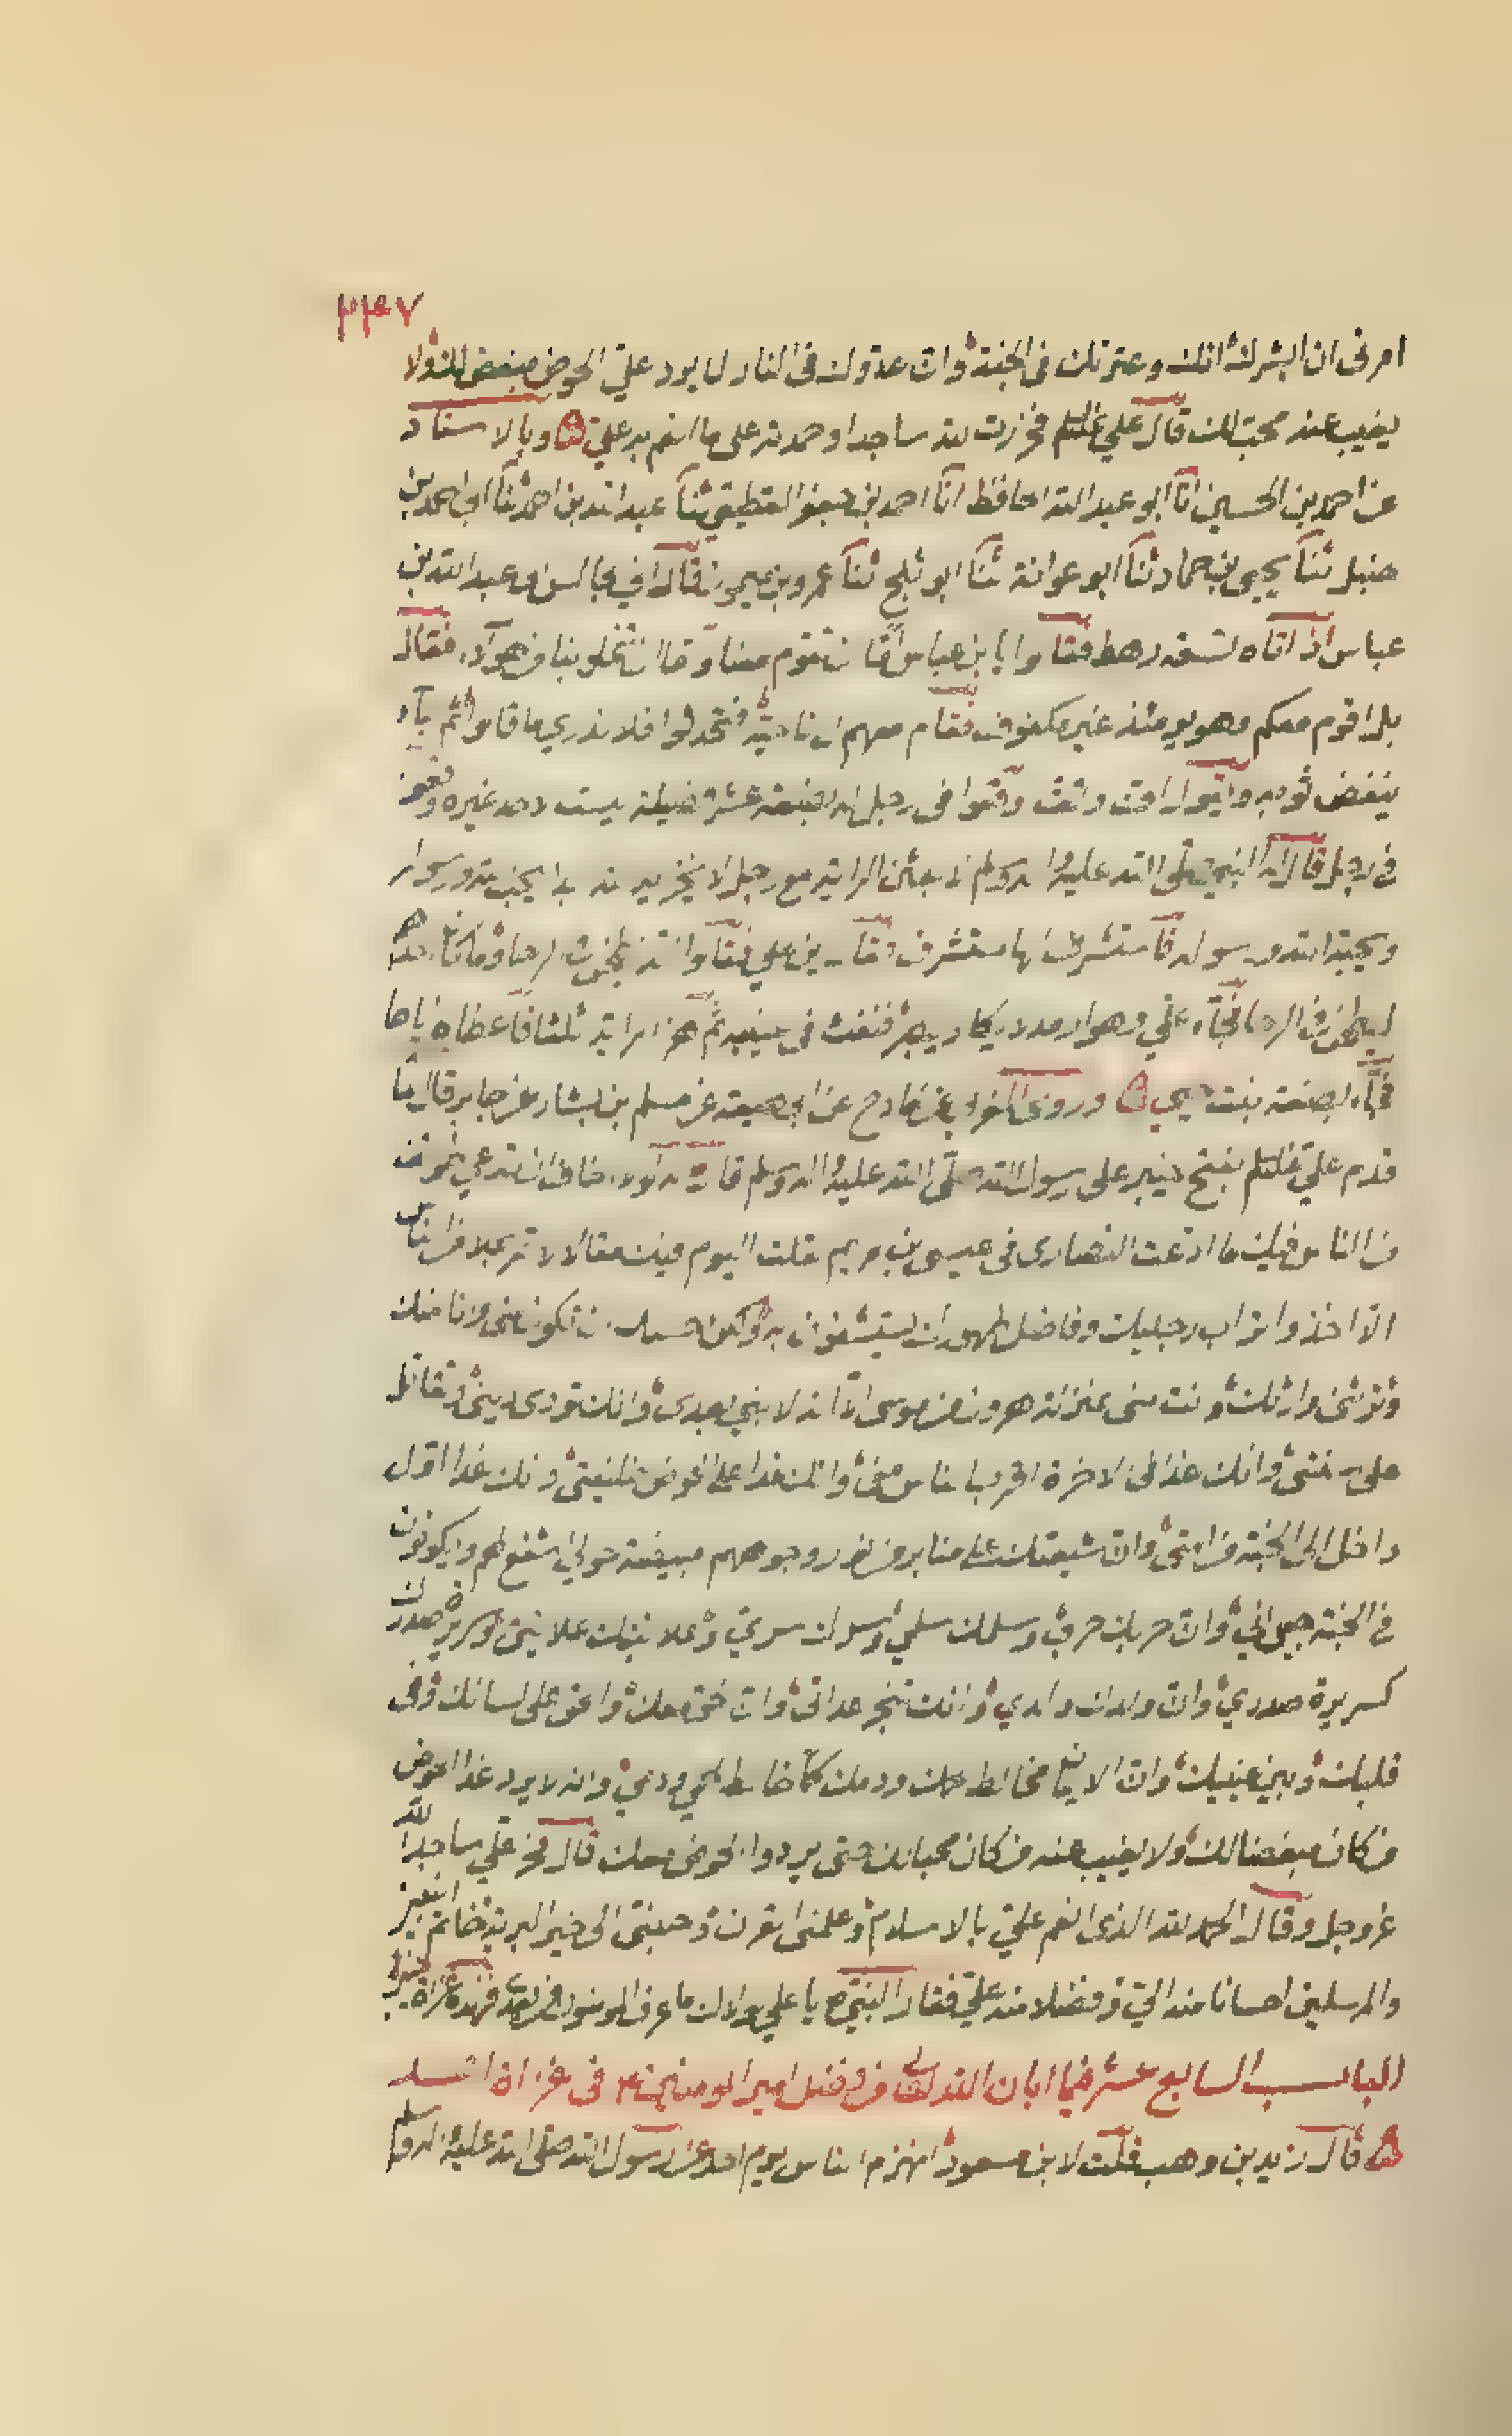 ٢٣٧
امرنى ان ابشرك انك وعترتك فى الجنة وان عدوك فى النار لا يرد علي الحوض مبغض لك ولا
يغيب عنه محب لك قال علي فخررت لله ساجدا وحمدته على ما انعم به علي وبالاسناد
عن احمد بن الحسين انا ابو عبد الله الحافظ انا احمد بن جعفر القطيعي ثنا عبد الله بن احمد ثنا ابي احمد بن
حنبل ثنا يحيى بن حماد ثنا ابو عوانة ثنا ابو بلج ثنا عمرو بن ميمون قال اني لجالس الى عبد الله بن
عباس اذ اتاه تسعة رهط فقالوا يا ابن عباس اما ان تقوم معنا واما ان تخلو بنا من هولاء فقال
بل اقوم معكم وهو يومئذ غير مكفوف فقام معهم الى ناحية فتحدثوا فلا ندري ما قالوا ثم جاء
ينفض ثوبه ويقول اف وتف وقعوا فى رجل له بضعة عشر فضيلة ليست لاحد غيره وقعوا
فى رجل قال له النبي صلى الله عليه واله وسلم لابعثن الراية مع رجل لا يخزيه الله ابدا يحب الله ورسوله
ويحبه الله ورسوله فاستشرف لها مستشرف فقال اين علي فقالوا انه فى الرحا وما كان احد
ليطحن الرحا فجاء علي وهو ارمد لا يكاد يبصر فنفث فى عينيه ثم هز الراية ثلثا فاعطاه اياها
فجاء بصفية بنت حيي وروى عن كادح عن ابى لهيعة عن مسلم بن يسار عن جابر قال لما
قدم علي بفتح خيبر على رسول الله صلى الله عليه واله وسلم قال له لولا
من الناس فيك ما ادعت النصارى فى عيسى بن مريم لقلت اليوم فيك مقالا لا تمر بملا من الناس
الا اخذوا تراب رجليك وفاضل طهورك يستشفون به ولكن حسبك ان تكون منى وانا منك
وترثنى وارثك وانت منى بمنزلة هرون من موسى الا انه لا نبي بعدى وانك تؤدى ديني وتقاتل
على سنتى وانك غدا فى الاخرة اقرب الناس منى وانك غدا على الحوض خليفتى وانك غدا اول
داخل الى الجنة من امتى وان شيعتك على منابر من نور وجوههم مبيضة حولي اشفع لهم ويكونون
فى الجنة جيراني وان حربك حربي وسلمك سلمي وسرك سري وعلانيتك علانيتى وسريرة صدرك
كسريرة صدري وان ولدك ولدي وانك تنجز عداتى وان الحق معك والحق على لسانك وفى
قلبك وبين عينيك وان الايمان مخالط لحمك ودمك كما خالط لحمي ودمي وانه لا يرد غدا الحوض
من كان مبغضا لك ولا يغيب عنه من كان محبا لك حتى يردوا الحوض معك قال فخر علي ساجدا لله
عز وجل وقال الحمد لله الذى انعم علي بالاسلام وعلمنى القرآن وحببنى الى خير البرية خاتم النبيين
والمرسلين احسانا منه الي وفضلا منه علي فقال النبي ص يا علي لولاك ما عرف المومنون من بعدي فهذه غزاة خيبر
الباب السابع عشر فيما ابان الله تعالى من فضل امير المومنين فى غزاة السلسلة
قال زيد بن وهب قلت لابن مسعود انهزم الناس يوم احد عن رسول الله صلى الله عليه واله وسلم